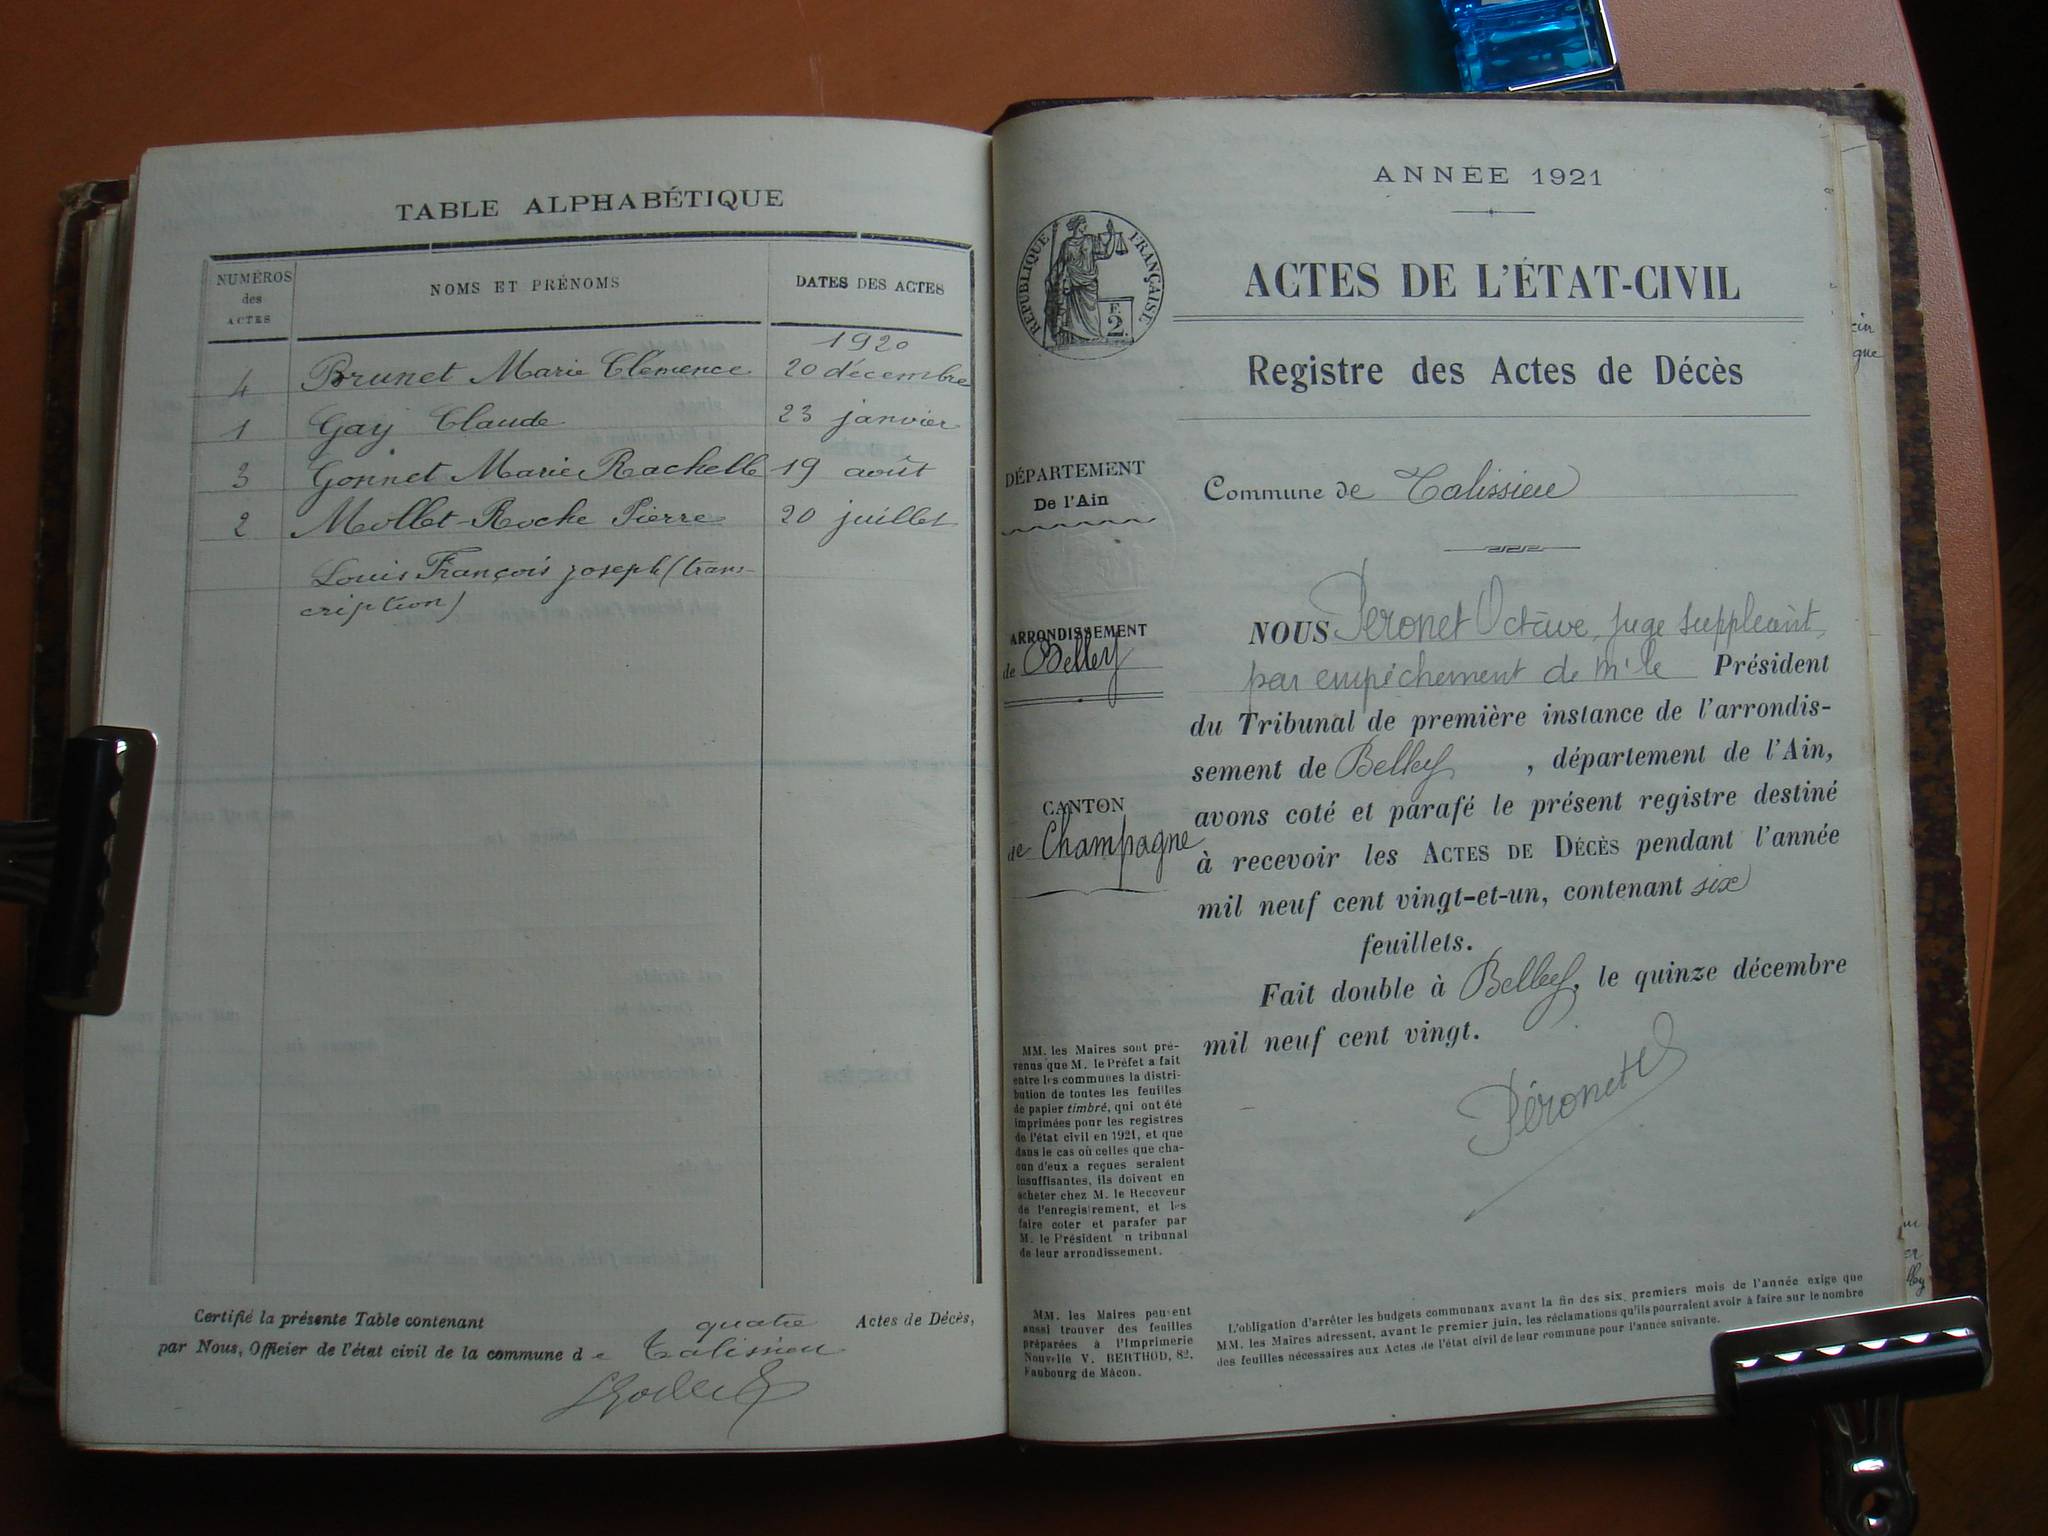 TABLE ALPHABÉTIQUE
NUMÉROS
des
ACTES
NOMS ET PRÉNOMS
DATES DES ACTES
1920
4 Brunet Marie Clemence 20 décembre
1 Gay Claude 23 janvier
3 Gonnet Marie Rachelle 19 août
2 Mollet-Roche Pierre 20 juillet
Louis François joseph (trans-
cription)
Certifié la présente Table contenant quatre Actes de Décès,
par Nous, Officier de l'état civil de la commune de Talissieu
ANNÉE 1921
RÉPUBLIQUE FRANÇAISE
E
2.
ACTES DE L'ÉTAT-CIVIL
Registre des Actes de Décès
DÉPARTEMENT
De l'Ain
Commune de Talissieu
ARRONDISSEMENT
de Belley
CANTON
de Champagne
NOUS Péronet Octave, juge suppléant
par empêchement de Mr le Président
du Tribunal de première instance de l'arrondis-
sement de Belley, département de l'Ain,
avons coté et parafé le présent registre destiné
à recevoir les ACTES DE DÉCÈS pendant l'année
mil neuf cent vingt-et-un, contenant six
feuillets.
Fait double à Belley, le quinze décembre
mil neuf cent vingt.
Péronet
MM. les Maires sont pré-
venus que M. le Préfet a fait
entre les communes la distri-
bution de toutes les feuilles
de papier timbré, qui ont été
imprimées pour les registres
de l'état civil en 1921, et que
dans le cas où celles que cha-
cun d'eux a reçues seraient
insuffisantes, ils doivent en
acheter chez M. le Receveur
de l'enregistrement, et les
faire coter et parafer par
M. le Président n tribunal
de leur arrondissement.
MM. les Maires peuvent
aussi trouver des feuilles
préparées à l'Imprimerie
Nouvelle V. BERTHOD, 82,
Faubourg de Mâcon.
L'obligation d'arrêter les budgets communaux avant la fin des six premiers mois de l'année exige que
MM. les Maires adressent, avant le premier juin, les réclamations qu'ils pourraient avoir à faire sur le nombre
des feuilles nécessaires aux Actes de l'état civil de leur commune pour l'année suivante.